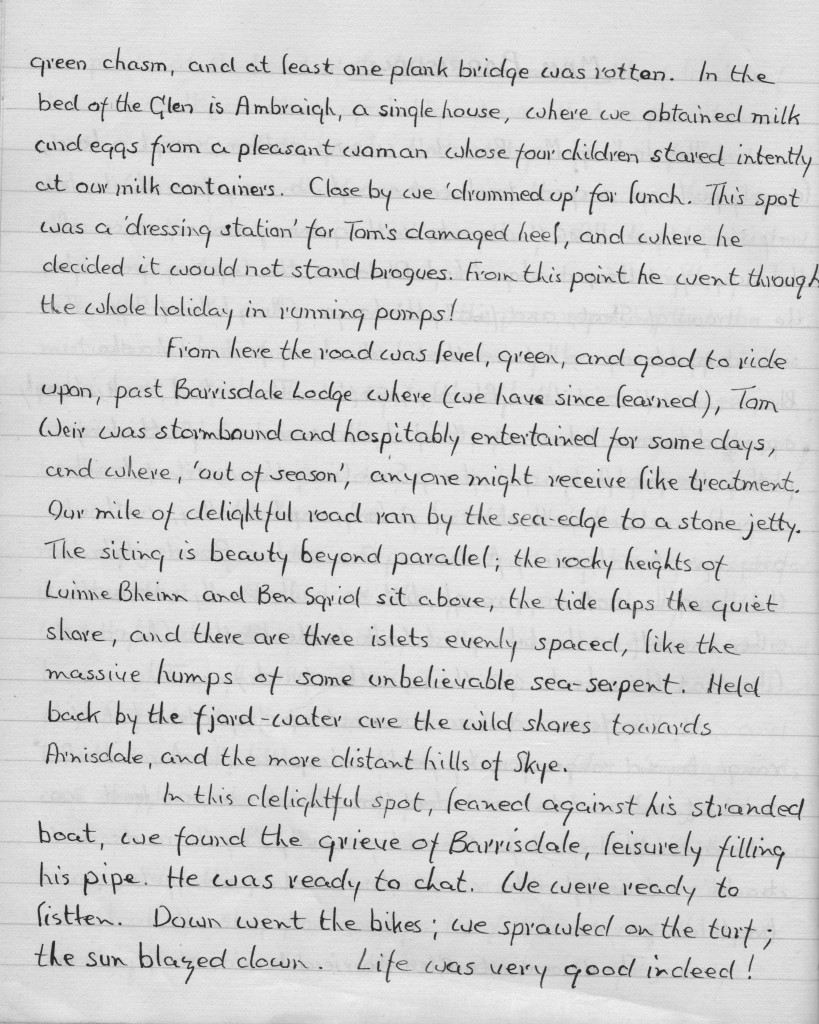 green chasm, and at least one plank bridge was rotten. In the
bed of the Glen is Ambraigh, a single house, where we obtained milk
and eggs from a pleasant woman whose four children stared intently
at our milk containers. Close by we 'drummed up' for lunch. This spot
was a 'dressing station' for Tom's damaged heel, and where he
decided it would not stand brogues. From this point he went through
the whole holiday in running pumps!
From here the road was level, green, and good to ride
upon, past Barrisdale Lodge where (we have since learned), Tom
Weir was stormbound and hospitably entertained for some days,
and where, 'out of season', anyone might receive like treatment.
Our mile of delightful road ran by the sea-edge to a stone jetty.
The siting is beauty beyond parallel; the rocky heights of
Luinne Bheinn and Ben Sgriol sit above, the tide laps the quiet
shore, and there are three islets evenly spaced, like the
massive humps of some unbelievable sea-serpent. Held
back by the fjord-water are the wild shores towards
Arnisdale, and the more distant hills of Skye.
In this delightful spot, leaned against his stranded
boat, we found the grieve of Barrisdale, leisurely filling
his pipe. He was ready to chat. We were ready to
listten. Down went the bikes; we sprawled on the turf;
the sun blazed down. Life was very good indeed!